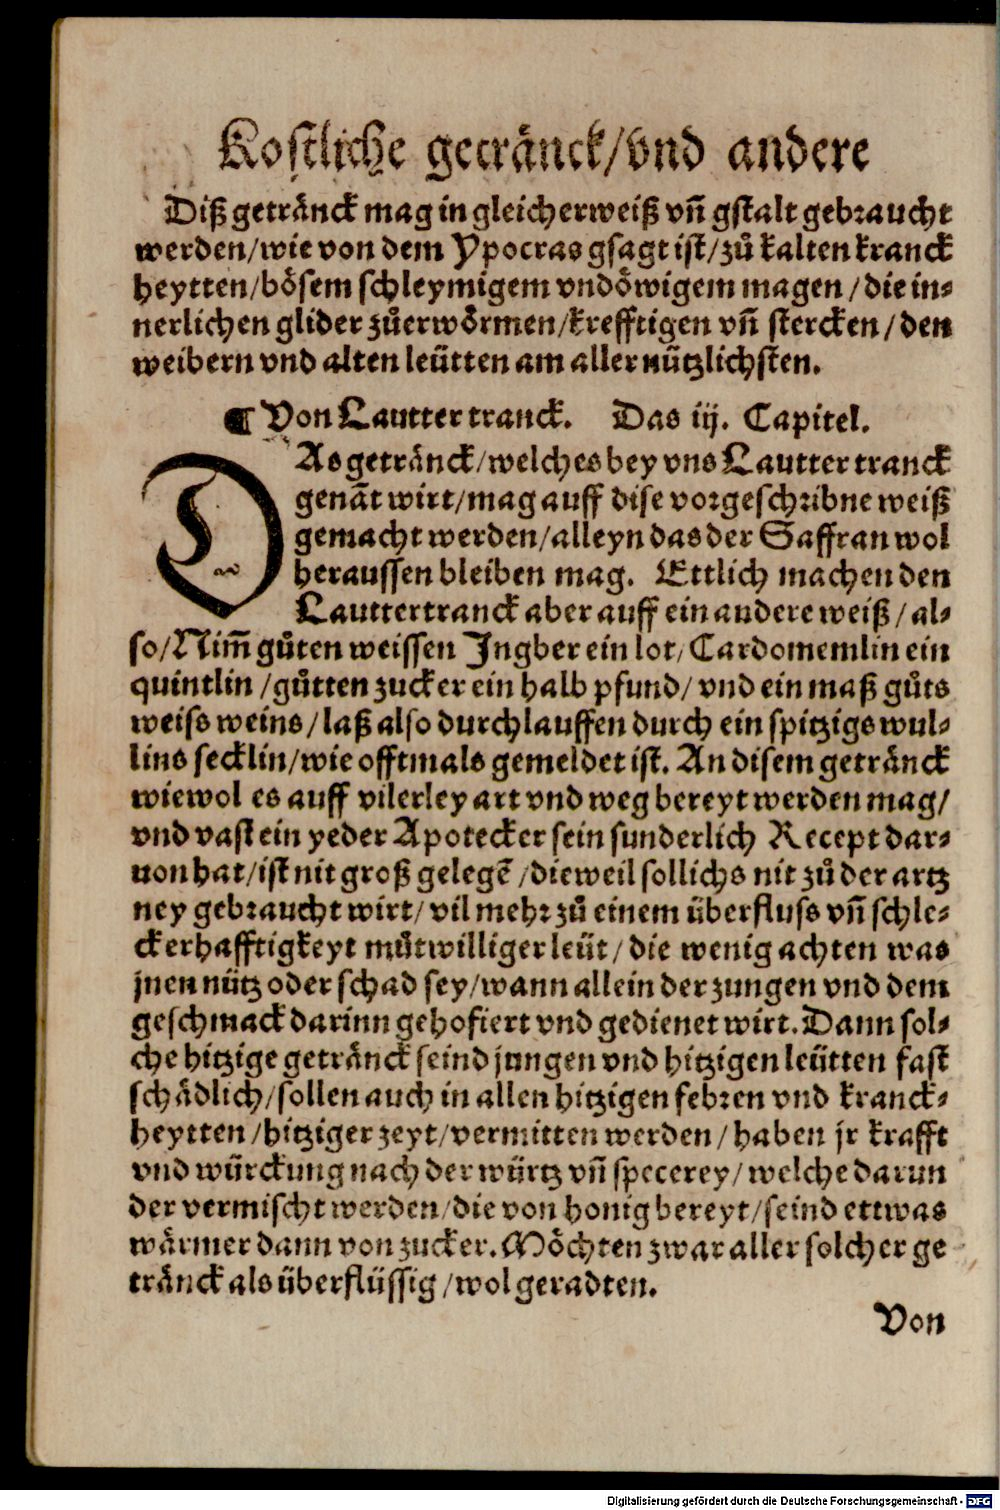 Kostliche getränck/vnd andere
Diß getränck mag in gleicherweiß vñ gstalt gebraucht
werden/wie von dem Ypocras gsagt ist/zů kalten kranck
heytten/bösem schleymigem vndöwigem magen/die in⸗
nerlichen glider zůerwörmen/krefftigen vñ stercken/den
weibern vnd alten leütten am aller nützlichsten.
¶ Von Lautter tranck. Das iij. Capitel.
DAs getränck/welches bey vns Lautter tranck
genãt wirt/mag auff dise vorgeschribne weiß
gemacht werden/alleyn das der Saffran wol
heraussen bleiben mag. Ettlich machen den
Lauttertranck aber auff ein andere weiß/al⸗
so/Nim̃ gůten weissen Ingber ein lot/Cardomemlin ein
quintlin/gůtten zucker ein halb pfund/vnd ein maß gůts
weiss weins/laß also durchlauffen durch ein spitzigs wul⸗
lins secklin/wie offtmals gemeldet ist. An disem getränck
wiewol es auff vilerley art vnd weg bereyt werden mag/
vnd vast ein yeder Apotecker sein sunderlich Recept dar⸗
uon hat/ist nit groß gelegẽ/dieweil sollichs nit zů der artz
ney gebraucht wirt/vil mehr zů einem überfluss vñ schle⸗
ckerhafftigkeyt můtwilliger leüt/die wenig achten was
jnen nütz oder schad sey/wann allein der zungen vnd dem
geschmack darinn gehofiert vnd gedienet wirt. Dann sol⸗
che hitzige getränck seind jungen vnd hitzigen leütten fast
schädlich/sollen auch in allen hitzigen febren vnd kranck⸗
heytten/hitziger zeyt/vermitten werden/haben jr krafft
vnd würckung nach der würtz vñ specerey/welche darun
der vermischt werden/die von honig bereyt/seind ettwas
wärmer dann von zucker. Möchten zwar aller solcher ge
tränck als überflüssig/wol geradten.
Von
Digitalisierung gefördert durch die Deutsche Forschungsgemeinschaft - DFG